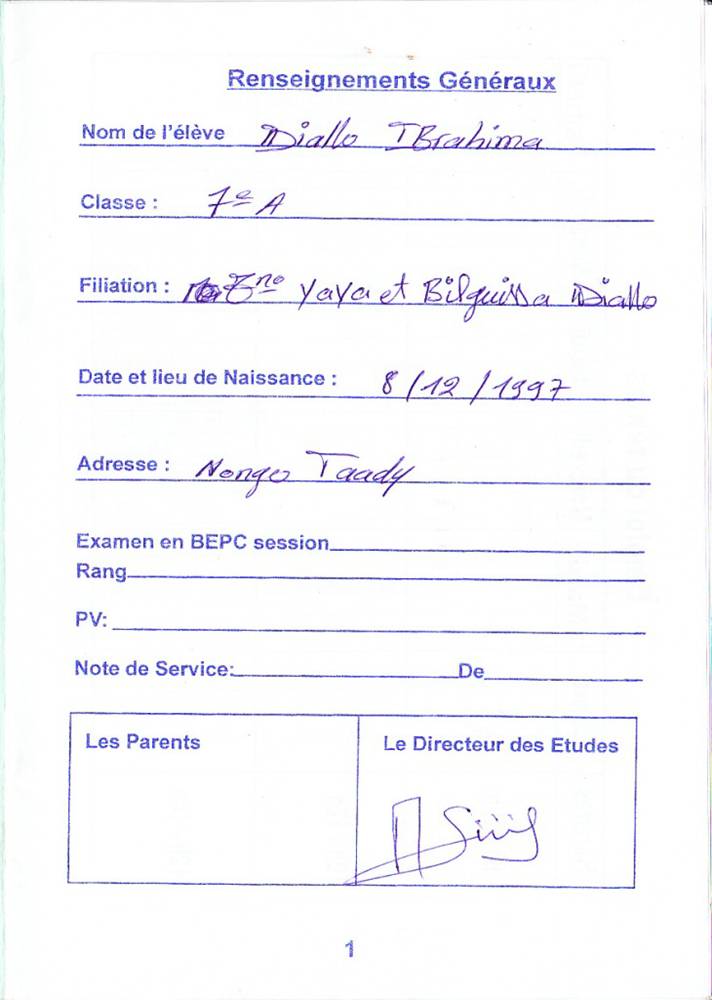 Renseignements Généraux
Nom de l'élève Diallo IBrahima
Classe : 7e A
Filiation : Yaya et Bilguissa Diallo
Date et lieu de Naissance : 8/12/1997
Adresse : Nongo Taady
Examen en BEPC session
Rang
PV:
Note de Service: De
Les Parents
Le Directeur des Etudes
1